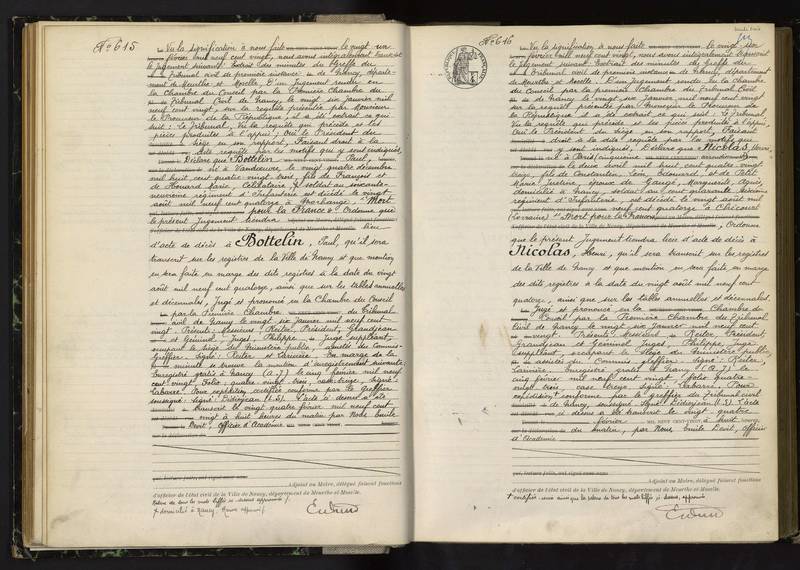 No 615
Vu la signification à nous faite le vingt un
février mil neuf cent vingt, nous avons intégralement transcrit
le jugement suivant: Extrait des minutes du Greffe du
Tribunal civil de première instance de Nancy, départe-
ment de Meurthe et Moselle. D'un Jugement rendu en
la Chambre du Conseil par la Première Chambre du
Tribunal Civil de Nancy, le vingt six Janvier mil
neuf cent vingt, sur la requête présentée par Monsieur
le Procureur de la République, il a été extrait ce qui
suit: Le Tribunal, Vu la requête qui précède et les
pièces produites à l'appui, Ouï le Président du
Siège en son rapport, Faisant droit à la
dite requête par les motifs qui y sont indiqués,
Déclare que Bottelin, Paul,
né à Vandœuvre, le vingt quatre décembre
mil huit cent quatre vingt trois, fils de François et
de Honard Marie, Célibataire, soldat au soixante-
neuvième régiment d'Infanterie est décédé le vingt
août mil neuf cent quatorze à Morhange, "Mort
pour la France", Ordonne que
le présent Jugement tiendra
lieu
d'acte de décès à Bottelin, Paul, qu'il sera
transcrit sur les registres de la Ville de Nancy et que mention
en sera faite en marge des dits registres à la date du vingt
août mil neuf cent quatorze, ainsi que sur les tables annuelles
et décennales, Jugé et prononcé en la Chambre du Conseil
par la Première Chambre du Tribunal
civil de Nancy le vingt six Janvier mil neuf cent
vingt. Présents: Messieurs: Reiter, Président, Grandjean
et Geminel, Juges, Philippe, Juge suppléant,
occupant le siège du Ministère public, assistés du Commis-
Greffier. Signé: Reiter et Larivière. En marge de la
minute se trouve la mention d'enregistrement suivante:
Enregistré gratis à Nancy (A.J.) le cinq février mil neuf
cent vingt, Folio quatre vingt trois, case treize, signé:
Labaure. Pour expédition certifiée conforme par le Greffier
soussigné: signé: Didierjean (L.S). L'acte ci dessus a été
transcrit le vingt quatre février mil neuf cent
vingt à huit heures du matin par Nous Emile
Devit, Officier d'Académie
Adjoint au Maire, délégué faisant fonctions
d'officier de l'état civil de la Ville de Nancy, département de Meurthe et Moselle.
No 616
Vu la signification à nous faite le vingt un
février mil neuf cent vingt, nous avons intégralement transcrit
le jugement suivant: Extrait des minutes du greffe du
Tribunal civil de première instance de Nancy, département
de Meurthe et Moselle. D'un Jugement rendu en la Chambre
du Conseil par la première Chambre du Tribunal Civil
de Nancy, le vingt six Janvier mil neuf cent vingt
sur la requête présentée par Monsieur le Procureur de
la République il a été extrait ce qui suit: Le Tribunal
Vu la requête qui précède et les pièces produites à l'appui,
Ouï le Président du Siège en son rapport, Faisant
droit à la dite requête par les motifs que
y sont indiqués, Déclare que Nicolas, Henri,
né à Paris (cinquième arrondissement)
le deux avril mil huit cent quatre vingt
fils de Constantin, Léon, Edouard, et de Petit
Marie Justine, époux de Marguerite,
domicilié à Nancy, soldat au
régiment d'Infanterie, est décédé le vingt août mil
neuf cent quatorze à Chicourt
(Lorraine) "Mort pour la France"
Ordonne
que le présent Jugement tiendra lieu d'acte de décès à
Nicolas, Henri, qu'il sera transcrit sur les registres
de la Ville de Nancy et que mention en sera faite en marge
des dits registres à la date du vingt août mil neuf cent
quatorze, ainsi que sur les tables annuelles et décennales.
Jugé et prononcé en la Chambre du
Conseil par la Première Chambre du Tribunal
Civil de Nancy le vingt six Janvier mil neuf cent
vingt. Présents: Messieurs Reiter, Président,
Grandjean et Geminel, Juges, Philippe, Juge
suppléant, occupant le siège du Ministère public,
assistés du Commis Greffier. Signé: Reiter,
Larivière. Enregistré gratis à Nancy (A.J.) le
cinq février mil neuf cent vingt, folio quatre
vingt trois, case treize, signé: Labaure. Pour
expédition conforme par le greffier du Tribunal civil
de Nancy, soussigné, signé: Didierjean (L.S). L'acte
ci dessus a été transcrit le vingt quatre
février à huit heures
du matin, par Nous Emile Devit, officier
d'Académie
Adjoint au Maire, délégué faisant fonctions
d'officier de l'état civil de la Ville de Nancy, département de Meurthe et Moselle.